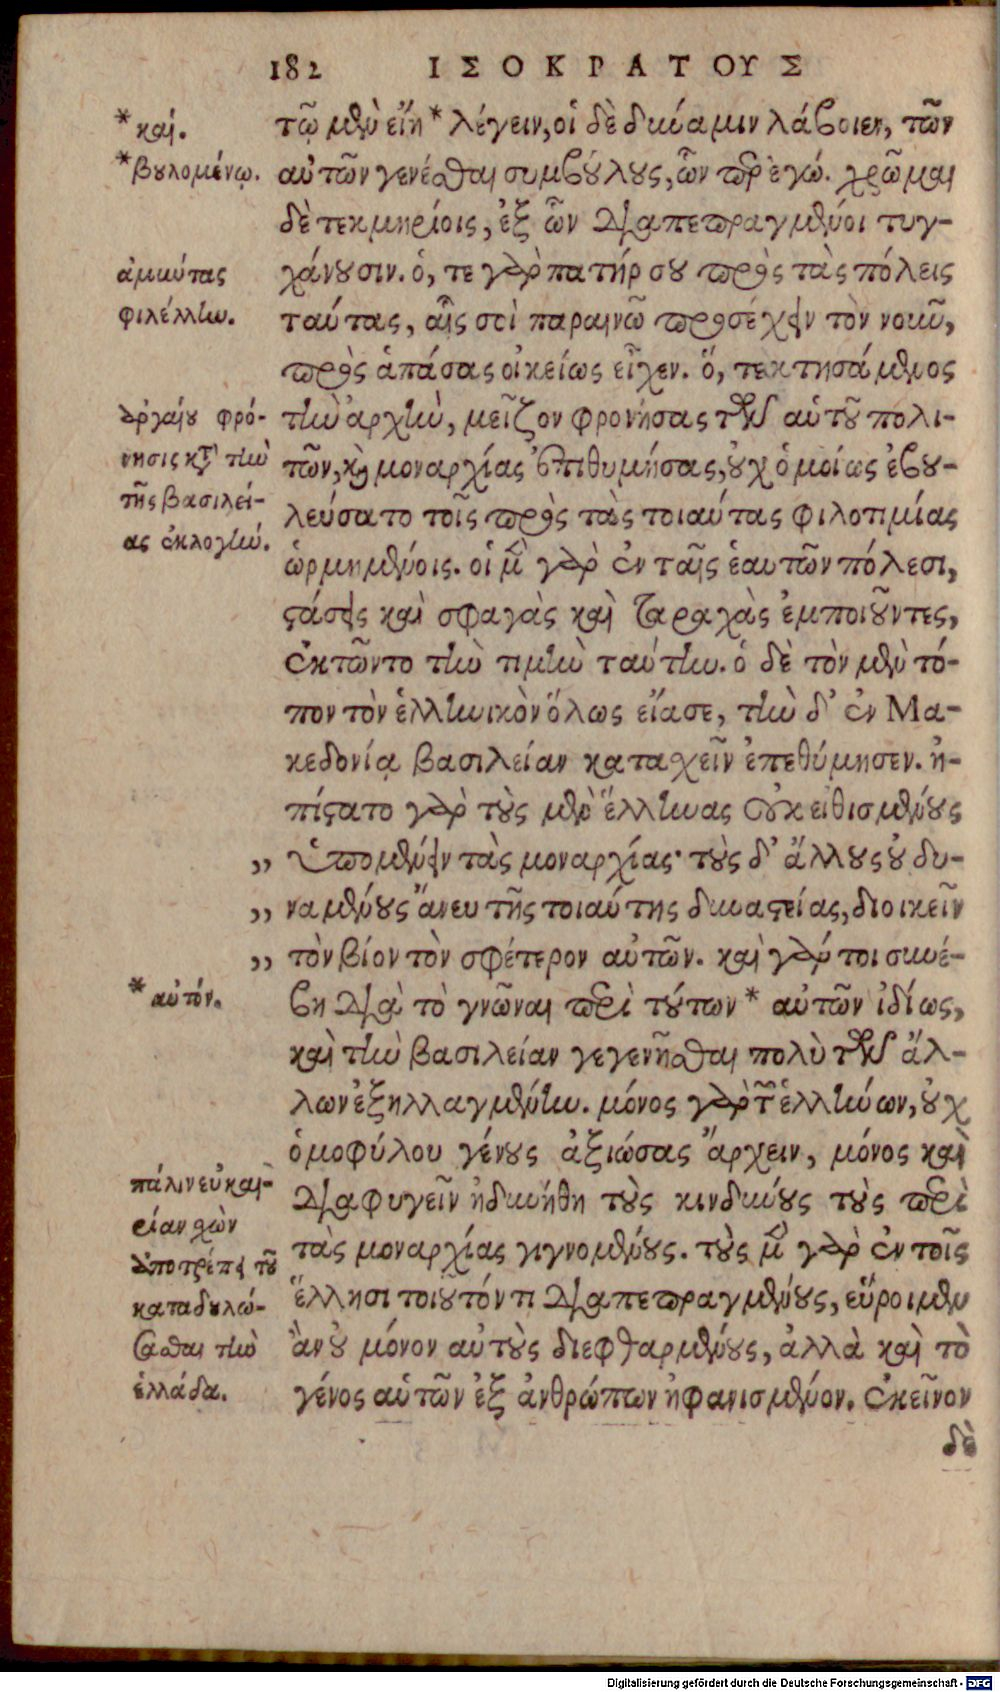 182 ΙΣΟΚΡΑΤΟΥΣ
τῷ μὲν εἴη * λέγειν, οἱ δὲ δύναμιν λάβοιεν, τῶν
αὐτῶν γενέσθαι συμβούλους, ὧν περ ἐγώ. χρῶμαι
δὲ τεκμηρίοις, ἐξ ὧν διαπεπραγμένοι τυγ-
χάνουσιν. ὅ, τε γὰρ πατήρ σου πρὸς τὰς πόλεις
ταύτας, αἷς σοὶ παραινῶ προσέχειν τὸν νοῦν,
πρὸς ἁπάσας οἰκείως εἶχεν. ὅ, τε κτησάμενος
τὴν ἀρχὴν, μεῖζον φρονήσας τῶν αὑτοῦ πολι-
τῶν, καὶ μοναρχίας ἐπιθυμήσας, οὐχ ὁμοίως ἐβου-
λεύσατο τοῖς πρὸς τὰς τοιαύτας φιλοτιμίας
ὡρμημένοις. οἱ μὲν γὰρ ἐν ταῖς ἑαυτῶν πόλεσι,
στάσεις καὶ σφαγὰς καὶ ταραχὰς ἐμποιοῦντες,
ἐκτῶντο τὴν τιμὴν ταύτην. ὁ δὲ τὸν μὲν τό-
πον τὸν ἑλληνικὸν ὅλως εἴασε, τὴν δ' ἐν Μα-
κεδονίᾳ βασιλείαν κατασχεῖν ἐπεθύμησεν. ἠ-
πίστατο γὰρ τοὺς μὲν ἕλληνας οὐκ εἰθισμένους
„ ὑπομένειν τὰς μοναρχίας· τοὺς δ' ἄλλους οὐ δυ-
„ ναμένους ἄνευ τῆς τοιαύτης δυναστείας, διοικεῖν
„ τὸν βίον τὸν σφέτερον αὐτῶν. καὶ γάρ τοι συνέ-
βη διὰ τὸ γνῶναι περὶ τούτων * αὐτῶν ἰδίως,
καὶ τὴν βασιλείαν γεγενῆσθαι πολὺ τῶν ἄλ-
λων ἐξηλλαγμένην. μόνος γὰρ τῶν ἑλλήνων, οὐχ
ὁμοφύλου γένους ἀξιώσας ἄρχειν, μόνος καὶ
διαφυγεῖν ἠδυνήθη τοὺς κινδύνους τοὺς περὶ
τὰς μοναρχίας γιγνομένους. τοὺς μὲν γὰρ ἐν τοῖς
ἕλλησι τοιοῦτόν τι διαπεπραγμένους, εὕροιμεν
ἂν οὐ μόνον αὐτοὺς διεφθαρμένους, ἀλλὰ καὶ τὸ
γένος αὑτῶν ἐξ ἀνθρώπων ἠφανισμένον. ἐκεῖνον
δὲ
* καί.
* βουλομένῳ.
ἀμύντας
φιλέλλην.
ἀργαίου φρό-
νησις κατὰ τὴν
τῆς βασιλεί-
ας ἐκλογήν.
* αὐτόν.
πάλιν εὐκαι-
ρίαν λχὼν
ἀποτρέπει τοῦ
καταδουλώ-
σασθαι τὴν
ἑλλάδα.
Digitalisierung gefördert durch die Deutsche Forschungsgemeinschaft - DFG